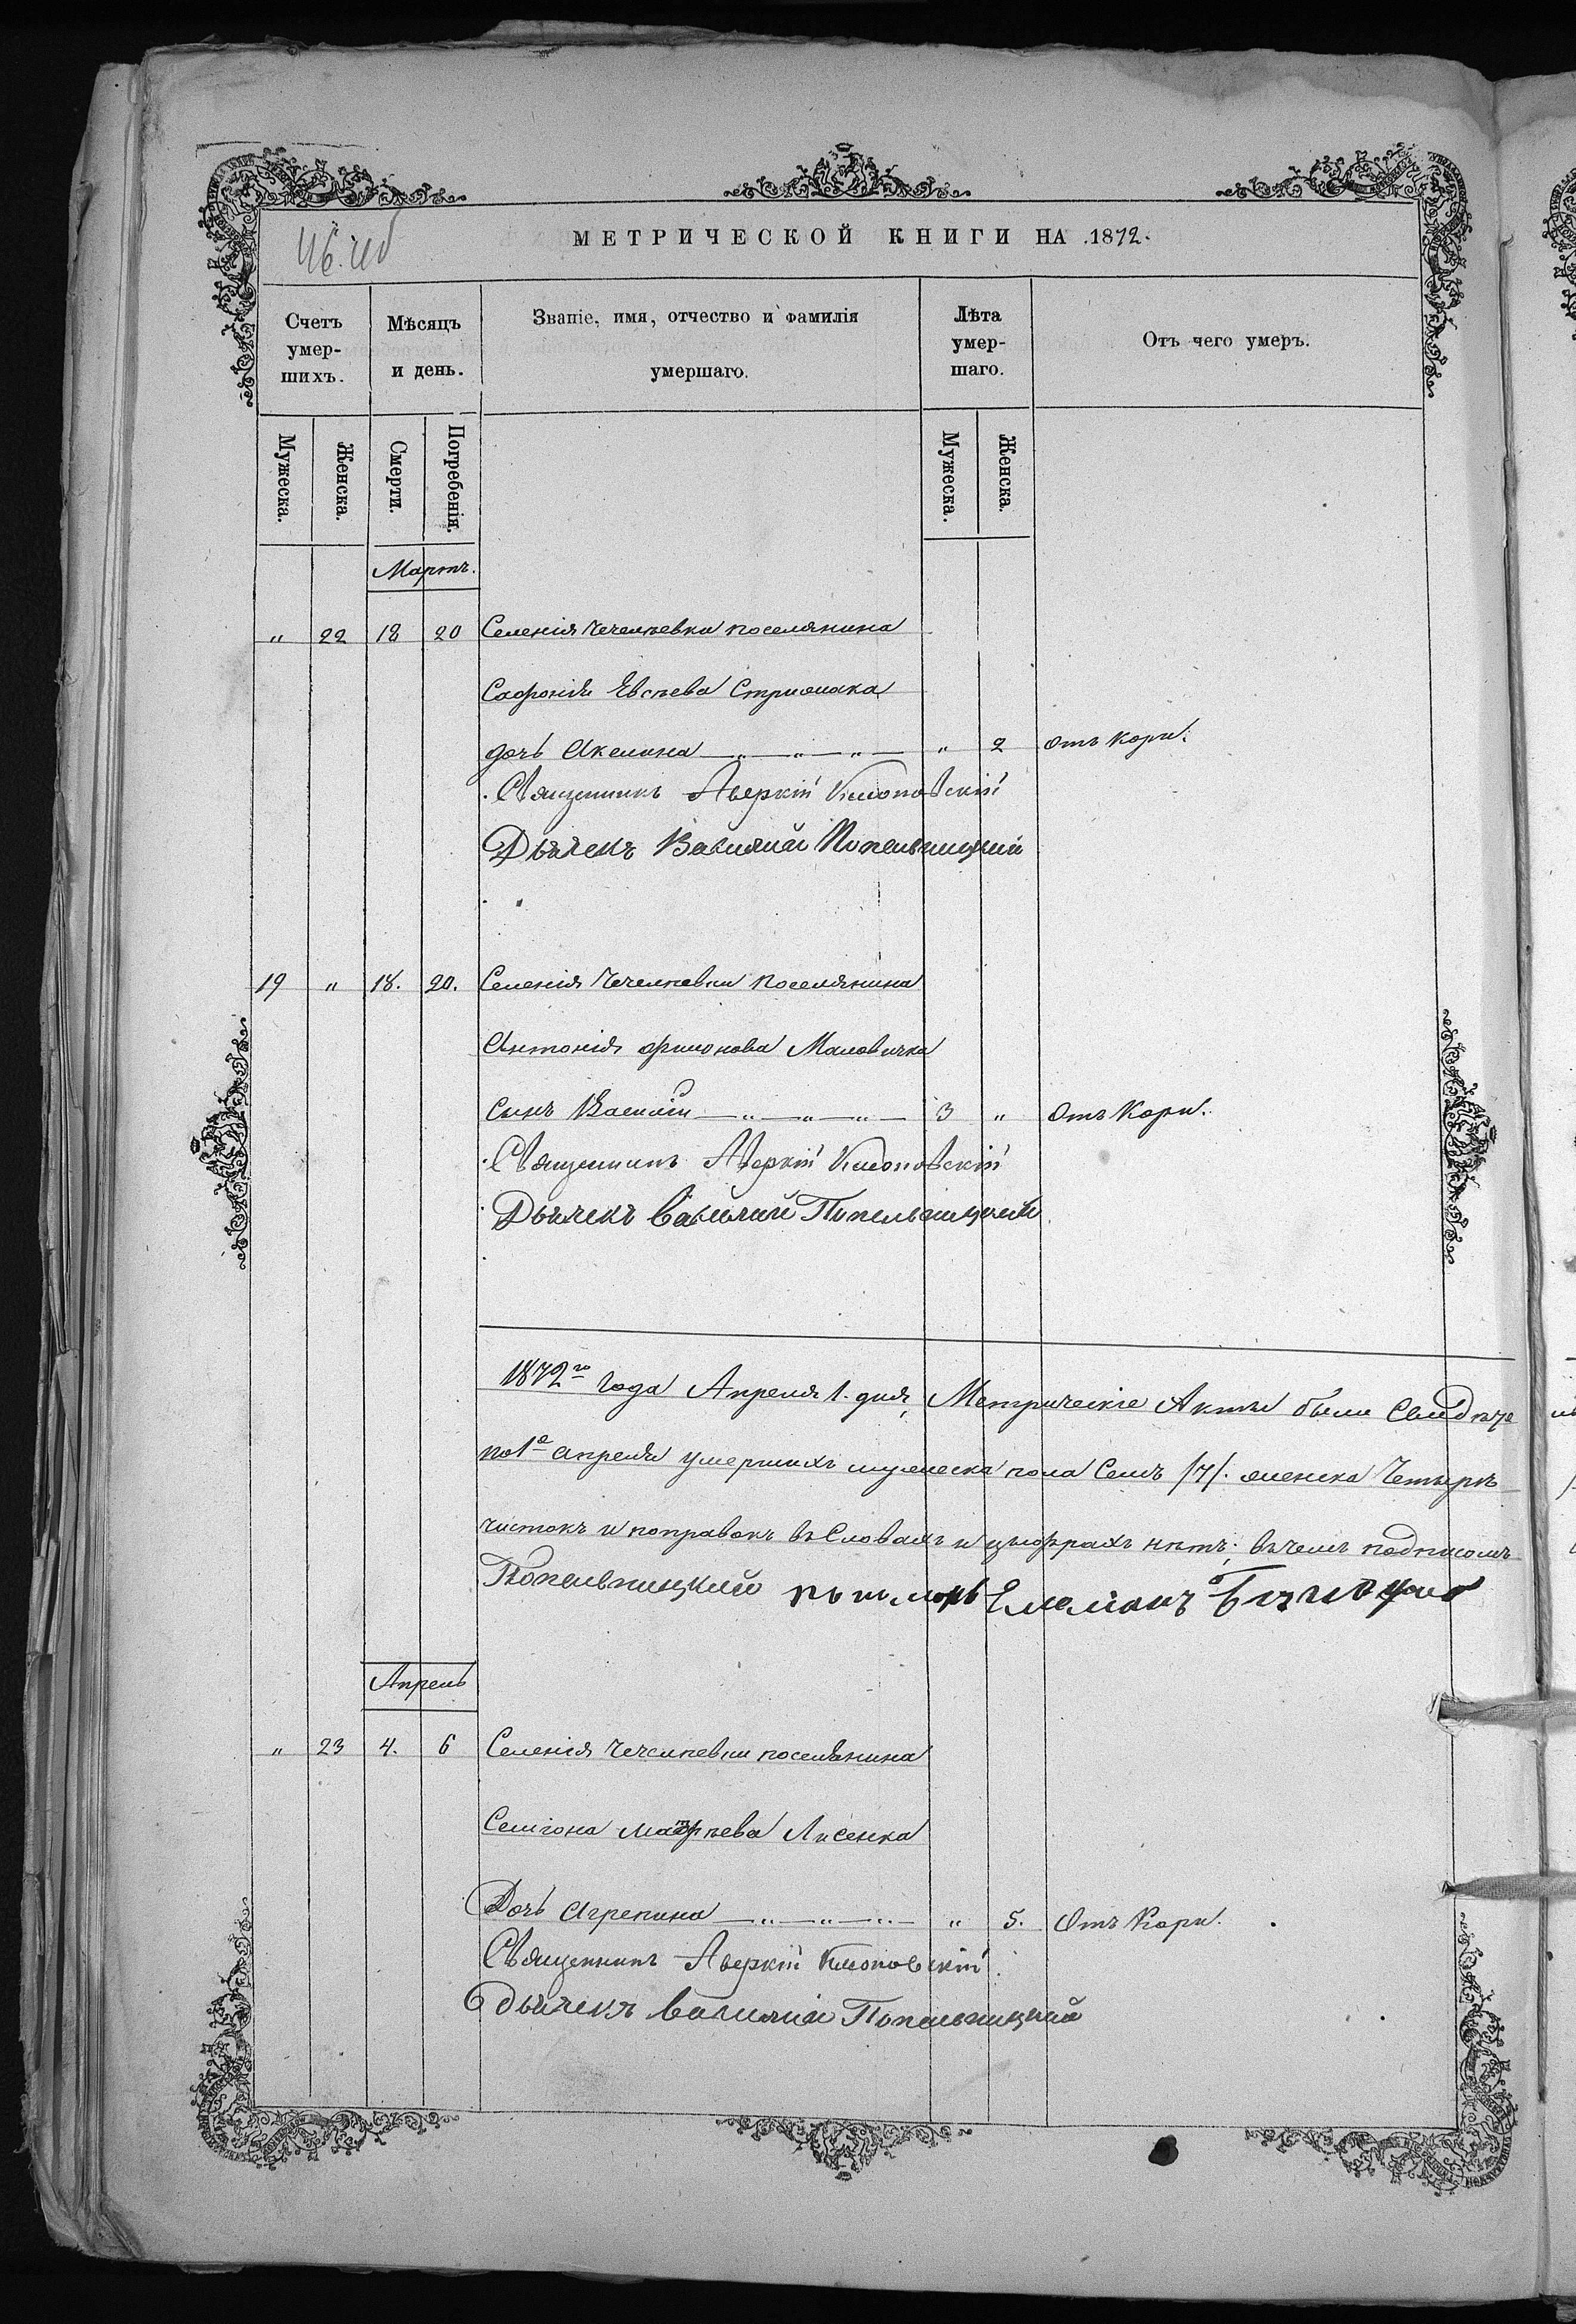 МЕТРИЧЕСКОЙ КНИГИ НА 1872.
Счетъ умер- шихъ.
Мѣсяцъ и день.
Званіе, имя, отчество и фамилія умершаго.
Лѣта умер- шаго.
Отъ чего умеръ.
Мужеска. Женска. Смерти. Погребенія. Мужеска. Женска.
Мартъ.
" 22 18 20 Селенія Чечелѣевки поселянина
Софронія Евсѣева
дочь Акелина — " — " — " — " 2 Отъ Кори.
Священникъ Аверкій Клоповскій
Дьячекъ Василий Попельницкий
19 " 18. 20. Селенія Чечелѣевки поселянина
Антонія филонова Маловичка
Сынъ Василій — " — " — " — 3 " Отъ Кори.
Священникъ Аверкій Клоповскій
Дьячекъ Василий Попельницкий
1872го года Апреля 1. дня, Метрическіе Акты были Свидѣте
по 1е апреля умершихъ мужеска пола Семь /7/. женска Четыре
чистокъ и поправокъ въ Словахъ и цыфрахъ нѣтъ; въ чемъ подписомъ
Попельницкий
Апрель
" 23 4. 6 Селенія Чечелѣевки поселянина
Семіона Матѳѣева Лисенка
Дочь Агрепина — " — " — " — " 5. Отъ Кори.
Священникъ Аверкій Клоповскій.
Дьячекъ Василий Попельницкий